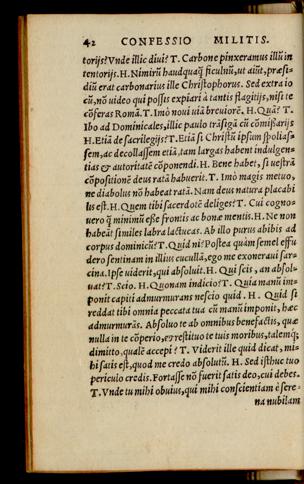 42 CONFESSIO MILITIS.
torijs? Vnde illic diui? T. Carbone pinxeramus illũ in
tentorijs. H. Nimirũ haudquaq̃ ficulnũ, ut aiũt, præsi-
diũ erat carbonarius ille Christophorus. Sed extra io
cũ, nõ uideo qui possis expiari à tantis flagitijs, nisi te
cõferas Romã. T. Imò noui uiã breuiorẽ. H. Quã? T.
Ibo ad Dominicales, illic paulo trãsigã cũ cõmissarijs
H. Etiã de sacrilegijs? T. Etiã si Christũ ipsum spolias-
sem, ac decollassem etiã, tam largas habent indulgen-
tias & autoritatẽ cõponendi. H. Bene habet, si uestrã
cõpositionẽ deus ratã habuerit. T. Imò magis metuo,
ne diabolus nõ habeat ratã. Nam deus natura placabi
lis est. H. Quem tibi sacerdotẽ deliges? T. Cui cogno-
uero q̃ minimũ esse frontis ac bonæ mentis. H. Ne non
habeãt similes labra lactucas. Ab illo purus abibis ad
corpus dominicũ? T. Quid ni? Postea quàm semel effu
dero sentinam in illius cucullã, ego me exoneraui sar-
cina. Ipse uiderit, qui absoluit. H. Qui scis, an absol-
uat? T. Scio. H. Quonam indicio? T. Quia manũ im-
ponit capiti admurmurans nescio quid. H. Quid si
reddat tibi omnia peccata tua cũ manũ imponit, hæc
admurmurãs. Absoluo te ab omnibus benefactis, quæ
nulla in te cõperio, & restituo te tuis moribus, talemq́;
dimitto, qualẽ accepi? T. Viderit ille quid dicat, mi-
hi satis est, quod me credo absolutũ. H. Sed isthuc tuo
periculo credis. Fortasse nõ fuerit satis deo, cui debes.
T. Vnde tu mihi obuius, qui mihi conscientiam è sere-
na nubilam